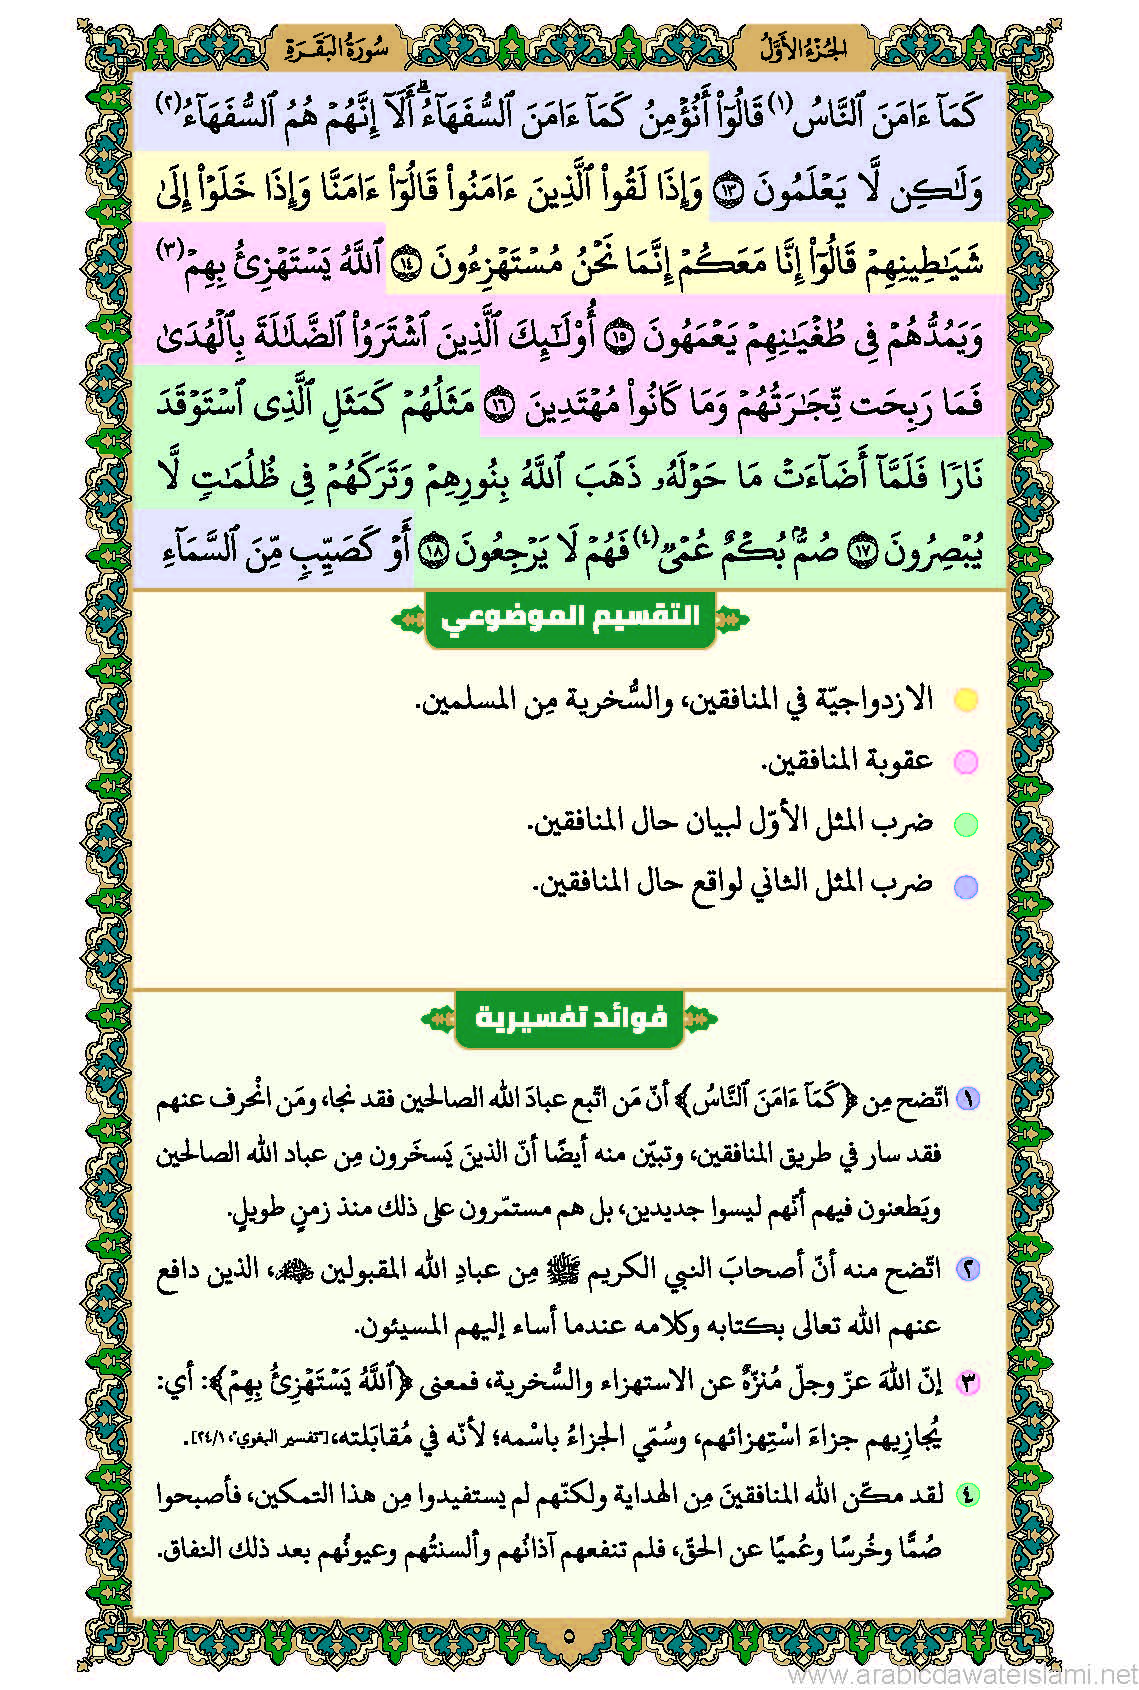 الجُزْءُ الأَوَّلُ
سُورَةُ البَقَرَةِ
كَمَآ ءَامَنَ ٱلنَّاسُ(١) قَالُوٓاْ أَنُؤۡمِنُ كَمَآ ءَامَنَ ٱلسُّفَهَآءُۗ أَلَآ إِنَّهُمۡ هُمُ ٱلسُّفَهَآءُ(٢)
وَلَٰكِن لَّا يَعۡلَمُونَ ١٣ وَإِذَا لَقُواْ ٱلَّذِينَ ءَامَنُواْ قَالُوٓاْ ءَامَنَّا وَإِذَا خَلَوۡاْ إِلَىٰ
شَيَٰطِينِهِمۡ قَالُوٓاْ إِنَّا مَعَكُمۡ إِنَّمَا نَحۡنُ مُسۡتَهۡزِءُونَ ١٤ ٱللَّهُ يَسۡتَهۡزِئُ بِهِمۡ(٣)
وَيَمُدُّهُمۡ فِي طُغۡيَٰنِهِمۡ يَعۡمَهُونَ ١٥ أُوْلَٰٓئِكَ ٱلَّذِينَ ٱشۡتَرَوُاْ ٱلضَّلَٰلَةَ بِٱلۡهُدَىٰ
فَمَا رَبِحَت تِّجَٰرَتُهُمۡ وَمَا كَانُواْ مُهۡتَدِينَ ١٦ مَثَلُهُمۡ كَمَثَلِ ٱلَّذِي ٱسۡتَوۡقَدَ
نَارٗا فَلَمَّآ أَضَآءَتۡ مَا حَوۡلَهُۥ ذَهَبَ ٱللَّهُ بِنُورِهِمۡ وَتَرَكَهُمۡ فِي ظُلُمَٰتٖ لَّا
يُبۡصِرُونَ ١٧ صُمُّۢ بُكۡمٌ عُمۡيٞ(٤) فَهُمۡ لَا يَرۡجِعُونَ ١٨ أَوۡ كَصَيِّبٖ مِّنَ ٱلسَّمَآءِ
التقسيم الموضوعي
الازدواجيّة في المنافقين، والسُّخرية مِن المسلمين.
عقوبة المنافقين.
ضرب المثل الأوّل لبيان حال المنافقين.
ضرب المثل الثاني لواقع حال المنافقين.
فوائد تفسيرية
١ اتّضح مِن ﴿كَمَآ ءَامَنَ ٱلنَّاسُ﴾ أنّ مَن اتّبع عبادَ الله الصالحين فقد نجا، ومَن انْحرف عنهم
فقد سار في طريق المنافقين، وتبيّن منه أيضًا أنّ الذينَ يَسخَرون مِن عباد الله الصالحين
ويَطعنون فيهم أنّهم ليسوا جديدين، بل هم مستمّرون على ذلك منذ زمنٍ طويلٍ.
٢ اتّضح منه أنّ أصحابَ النبي الكريم ﷺ مِن عبادِ الله المقبولين ﵃، الذين دافع
عنهم الله تعالى بكتابه وكلامه عندما أساء إليهم المسيئون.
٣ إنّ اللهَ عزّ وجلّ مُنزّهٌ عن الاستهزاء والسُّخرية، فمعنى ﴿ٱللَّهُ يَسۡتَهۡزِئُ بِهِمۡ﴾: أي:
يُجازِيهم جزاءَ اسْتِهزائهم، وسُمّي الجزاءُ باسْمه؛ لأنّه في مُقابَلته، ["تفسير البغوي"، ٢٤/١].
٤ لقد مكّن الله المنافقينَ مِن الهداية ولكنّهم لم يستفيدوا مِن هذا التمكين، فأصبحوا
صُمًّا وخُرسًا وعُميًا عن الحقّ، فلم تنفعهم آذانُهم وألسنتُهم وعيونُهم بعد ذلك النفاق.
٥
www.arabicdawateislami.net